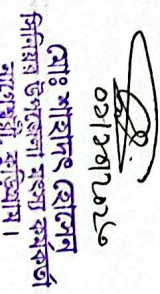 ০৩।১২।২০২৩
মোঃ শাহাদৎ হোসেন
সিনিয়র উপজেলা মৎস্য কর্মকর্তা
নাগেশ্বরী, কুড়িগ্রাম।